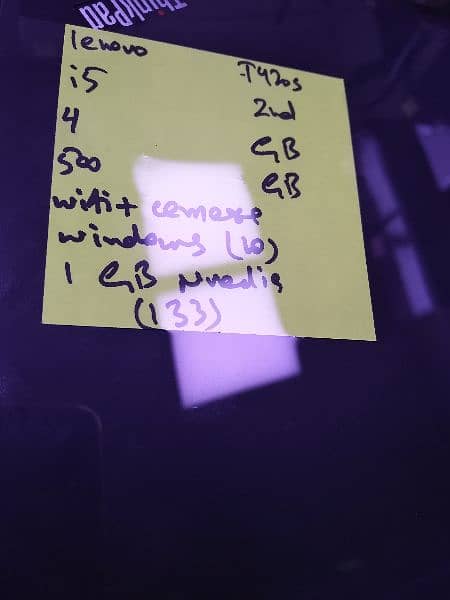 ThinkPad
lenovo T420s
i5 2nd
4 GB
500 GB
wifi+ camera
windows (10)
1 GB Nvedia
(133)